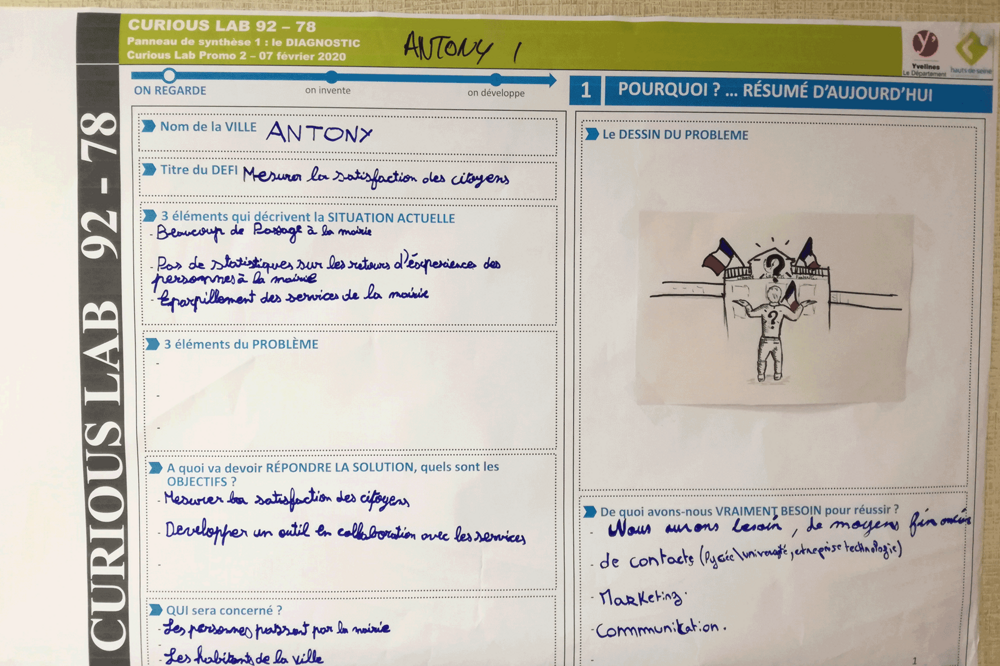 CURIOUS LAB 92 – 78
Panneau de synthèse 1 : le DIAGNOSTIC
Curious Lab Promo 2 – 07 février 2020
ANTONY 1
Yvelines
Le Département
hauts-de-seine
CURIOUS LAB 92 - 78
ON REGARDE
on invente
on développe
Nom de la VILLE ANTONY
Titre du DEFI Mesurer la satisfaction des citoyens
3 éléments qui décrivent la SITUATION ACTUELLE
- Beaucoup de Passage à la mairie
- Pas de statistiques sur les retours d'éxperiences des
personnes à la mairie
- Eparpillement des services de la mairie
3 éléments du PROBLÈME
-
-
-
A quoi va devoir RÉPONDRE LA SOLUTION, quels sont les
OBJECTIFS ?
- Mesurer la satisfaction des citoyens
- Developper un outil en collaboration avec les services
-
QUI sera concerné ?
- Les personnes passant par la mairie
- Les habitants de la ville
1 POURQUOI ? ... RÉSUMÉ D'AUJOURD'HUI
Le DESSIN DU PROBLEME
?
?
De quoi avons-nous VRAIMENT BESOIN pour réussir ?
- Nous aurons besoin, de moyens
- de contacts (lycée\université, entreprise technologie)
- Marketing.
- Communication.
-
1